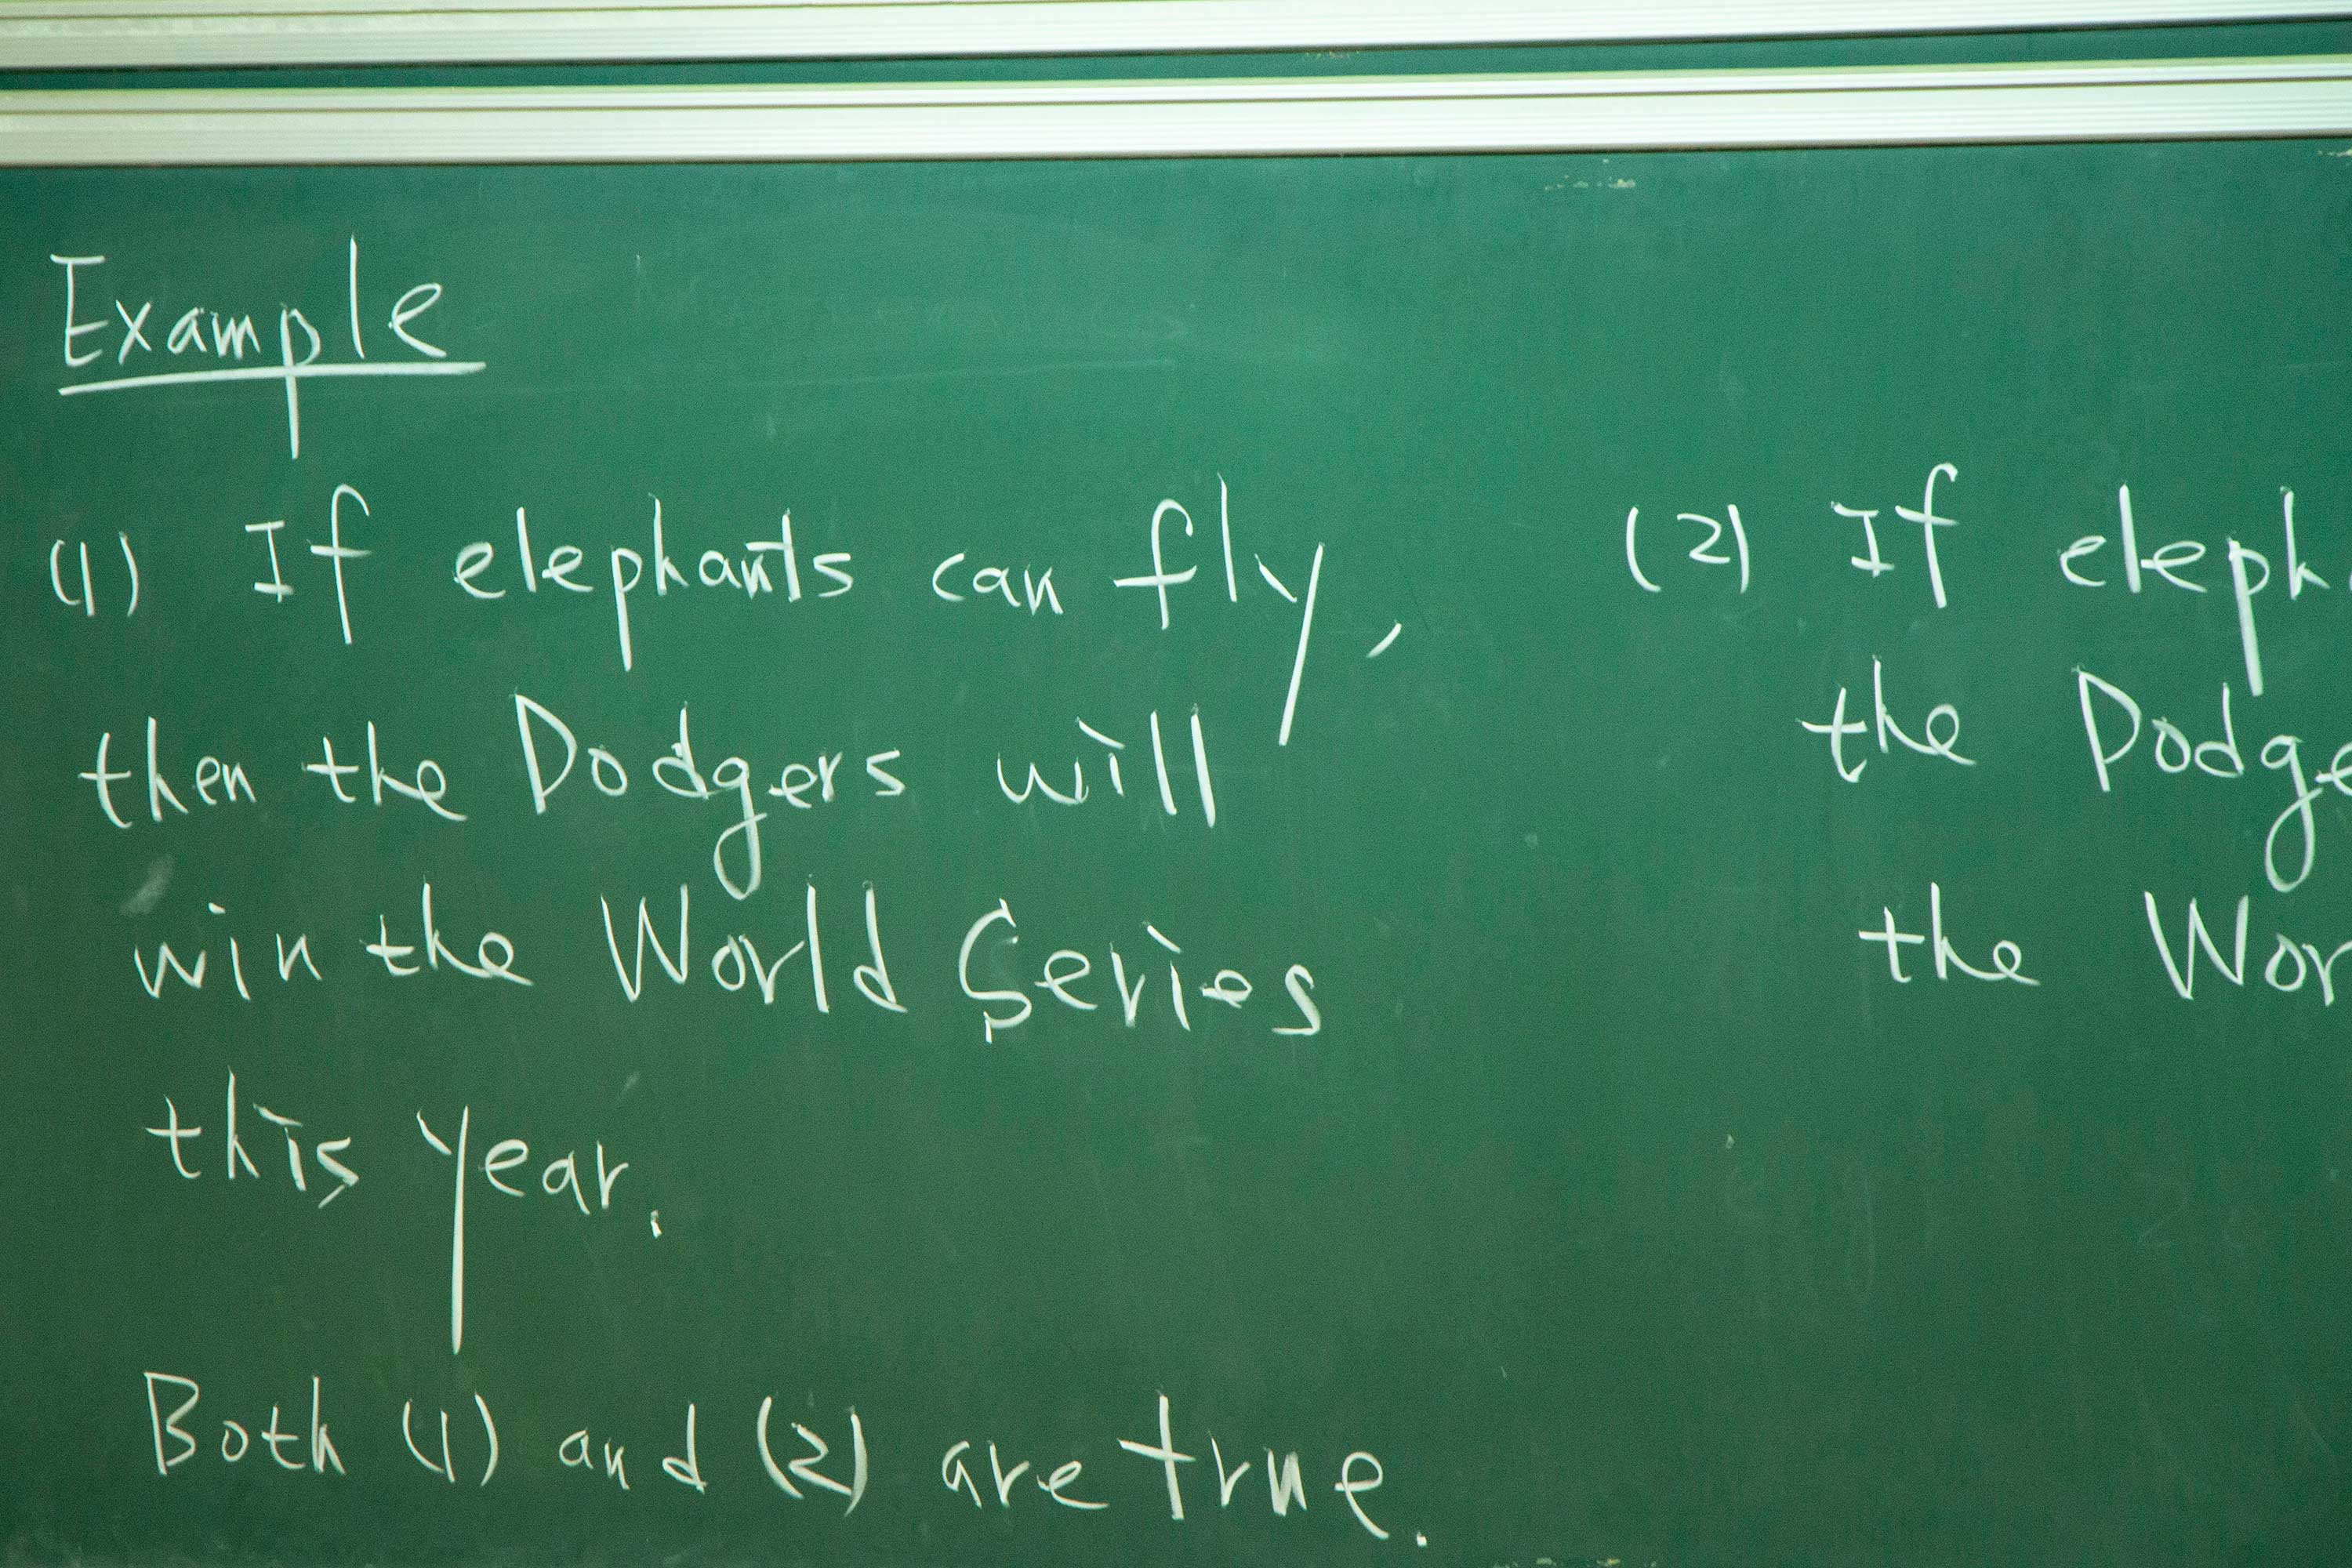 Example
(1) If elephants can fly,
then the Dodgers will
win the World Series
this year.
(2) If eleph
the Dodge
the Wor
Both (1) and (2) are true.